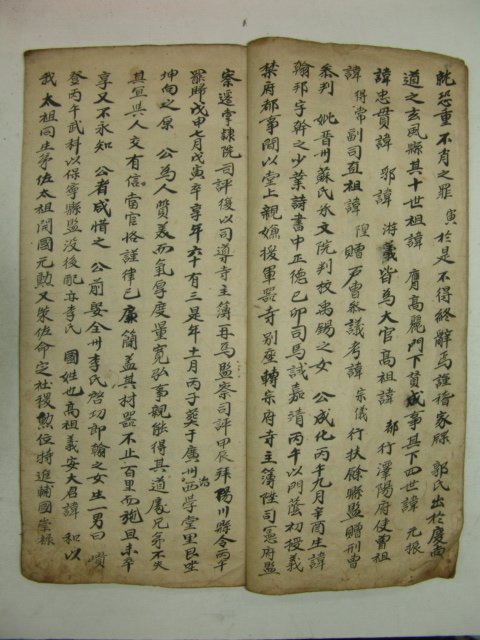 眈恐重不肖之罪 寅於是不得終辭焉謹稽家牒 郭氏出於慶尙
道之玄風縣其十世祖諱 膺高麗門下贊成事其下四世諱 元振
諱忠貫諱 鄂諱 游義皆爲大官高祖諱 都行潭陽府使曾祖
諱 得常副司直祖諱 陞贈戶曹參議考諱 宗儀行扶餘縣監贈刑曹
參判 妣晉州蘇氏承文院判校禹錫之女 公成化丙午九月辛酉生諱
翰邦字幹之少業詩書中正德己卯司馬試嘉靖丙午以門蔭初授義
禁府都事間以堂上親嫌援軍器寺別座轉宗府寺主簿陞司憲府監
察遷掌隷院司評後以司導寺主簿再爲監察司評甲辰拜陽川縣令丙午
罷歸戊申七月戊寅卒享年六十有三是年十一月丙子葬于廣州西學堂里艮坐
坤向之原 公爲人質美而氣厚度量寬弘事親能得其道處兄弟不失
其宜與人交有信當官恪謹律己廉簡蓋其材器不止百里而施且未卒
享又不永知 公者咸惜之 公前娶全州李氏啓功郞翰之女生一男曰 嶒
登丙午武科以保寧縣監沒後配亦李氏 國姓也高祖義安大君諱 和以
我 太祖同生弟佐太祖開國元勳又策佐命定社稷勳位特進輔國崇祿